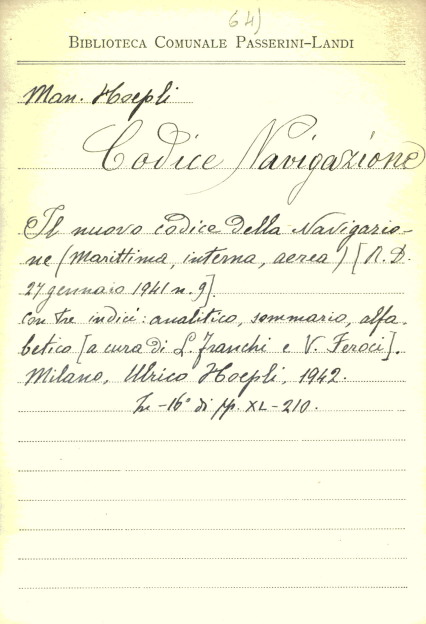 64)
BIBLIOTECA COMUNALE PASSERINI-LANDI
Man. Hoepli
Codice Navigazione
Il nuovo codice della Navigazio-
ne (Marittima, interna, aerea) [R. D.
27 gennaio 1941 n. 9].
Con tre indici: analitico, sommario, alfa-
betico [a cura di L. Franchi e V. Feroci].
Milano, Ulrico Hoepli, 1942.
In -16° di pp. XL-210.